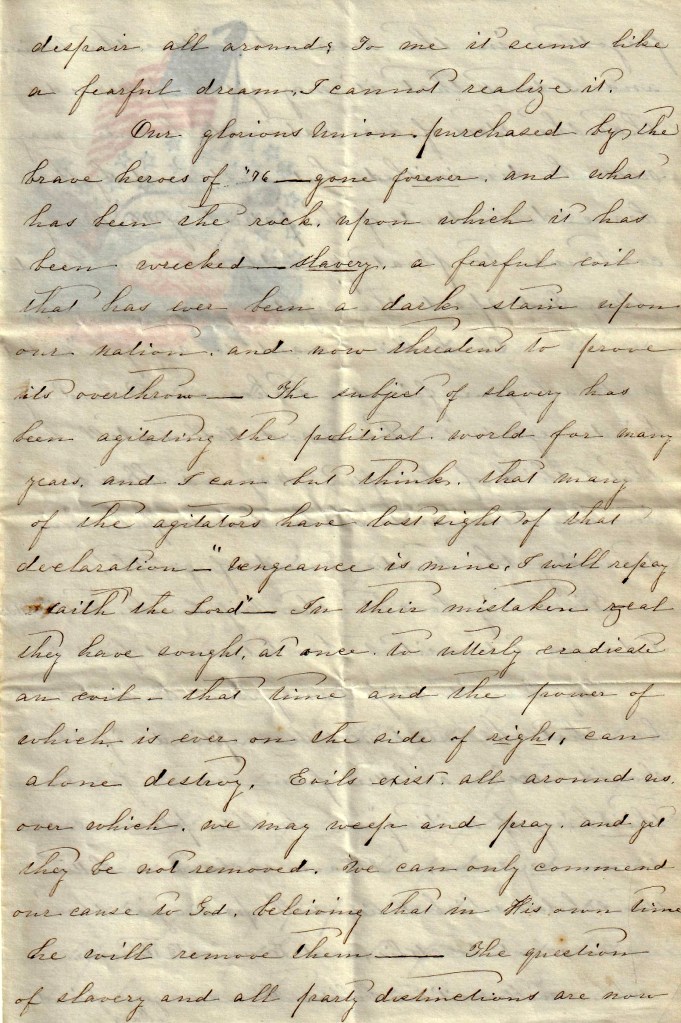 despair all around, To me it seems like
a fearful dream, I cannot realize it.
Our glorious Union, purchased by the
brave heroes of "76 — gone forever. and what
has been the rock, upon which it has
been wrecked — slavery, a fearful evil
that has ever been a dark stain upon
our nation. and now threatens to prove
its overthrow — The subject of slavery has
been agitating the political world for many
years, and I can but think, that many
of the agitators have lost sight of that
declaration — "Vengeance is mine, I will repay
saith the Lord" — In their mistaken zeal
they have sought, at once, to utterly eradicate
an evil — that time and the power of
which is ever on the side of right, can
alone destroy. Evils exist all around us.
over which, we may weep and pray, and yet
they be not removed. We can only commend
our cause to God, beleiving that in His own time
he will remove them — The question
of slavery and all party distinctions are now